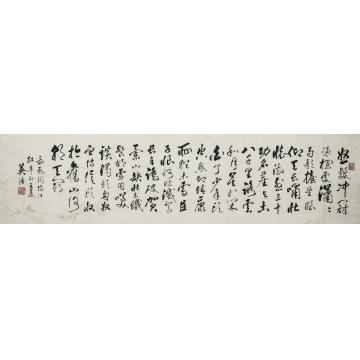 怒髮冲冠
憑欄處瀟瀟
雨歇抬望眼
仰天長嘯壯
懷激烈三十
功名塵與土
八千里路雲
和月莫等閑
白了少年頭
空悲切靖康
恥猶未雪臣
子恨何時滅駕
長車踏破賀
蘭山缺壯志飢
餐胡虜肉笑
談渴飲匈奴
血待從頭收
拾舊山河
朝天闕
岳飛詞滿江
紅辛卯